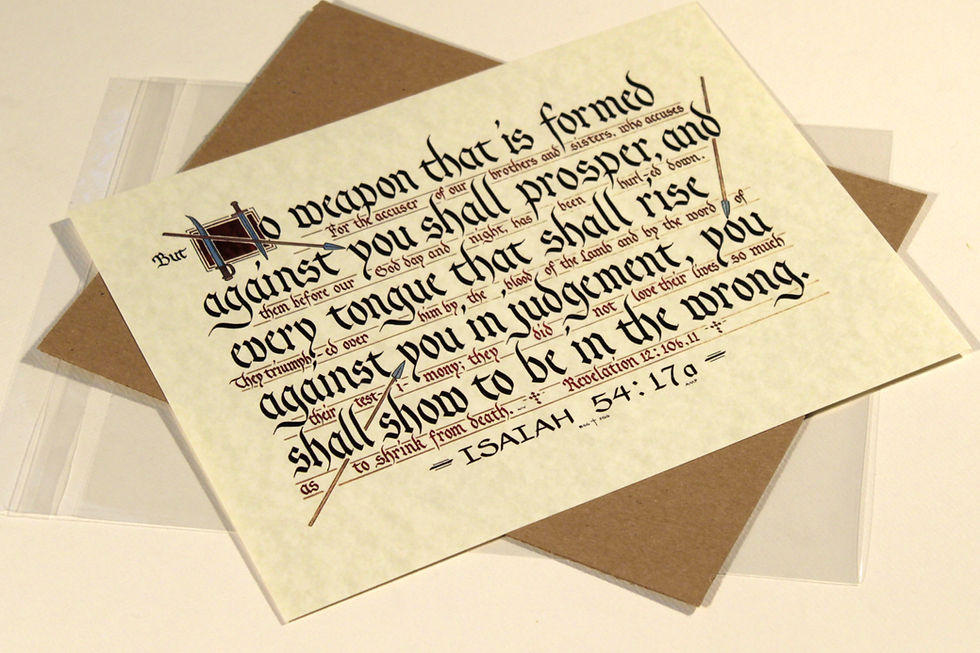 But No weapon that is formed
For the accuser of our brothers and sisters, who accuses
against you shall prosper, and
them before our God day and night, has been hurl-ed down.
every tongue that shall rise
They triumph-ed over him by the blood of the Lamb and by the word of
against you in judgement, you
their test-i-mony; they did not love their lives so much
shall show to be in the wrong.
as to shrink from death. Revelation 12:10b.11
= ISAIAH 54:17a =